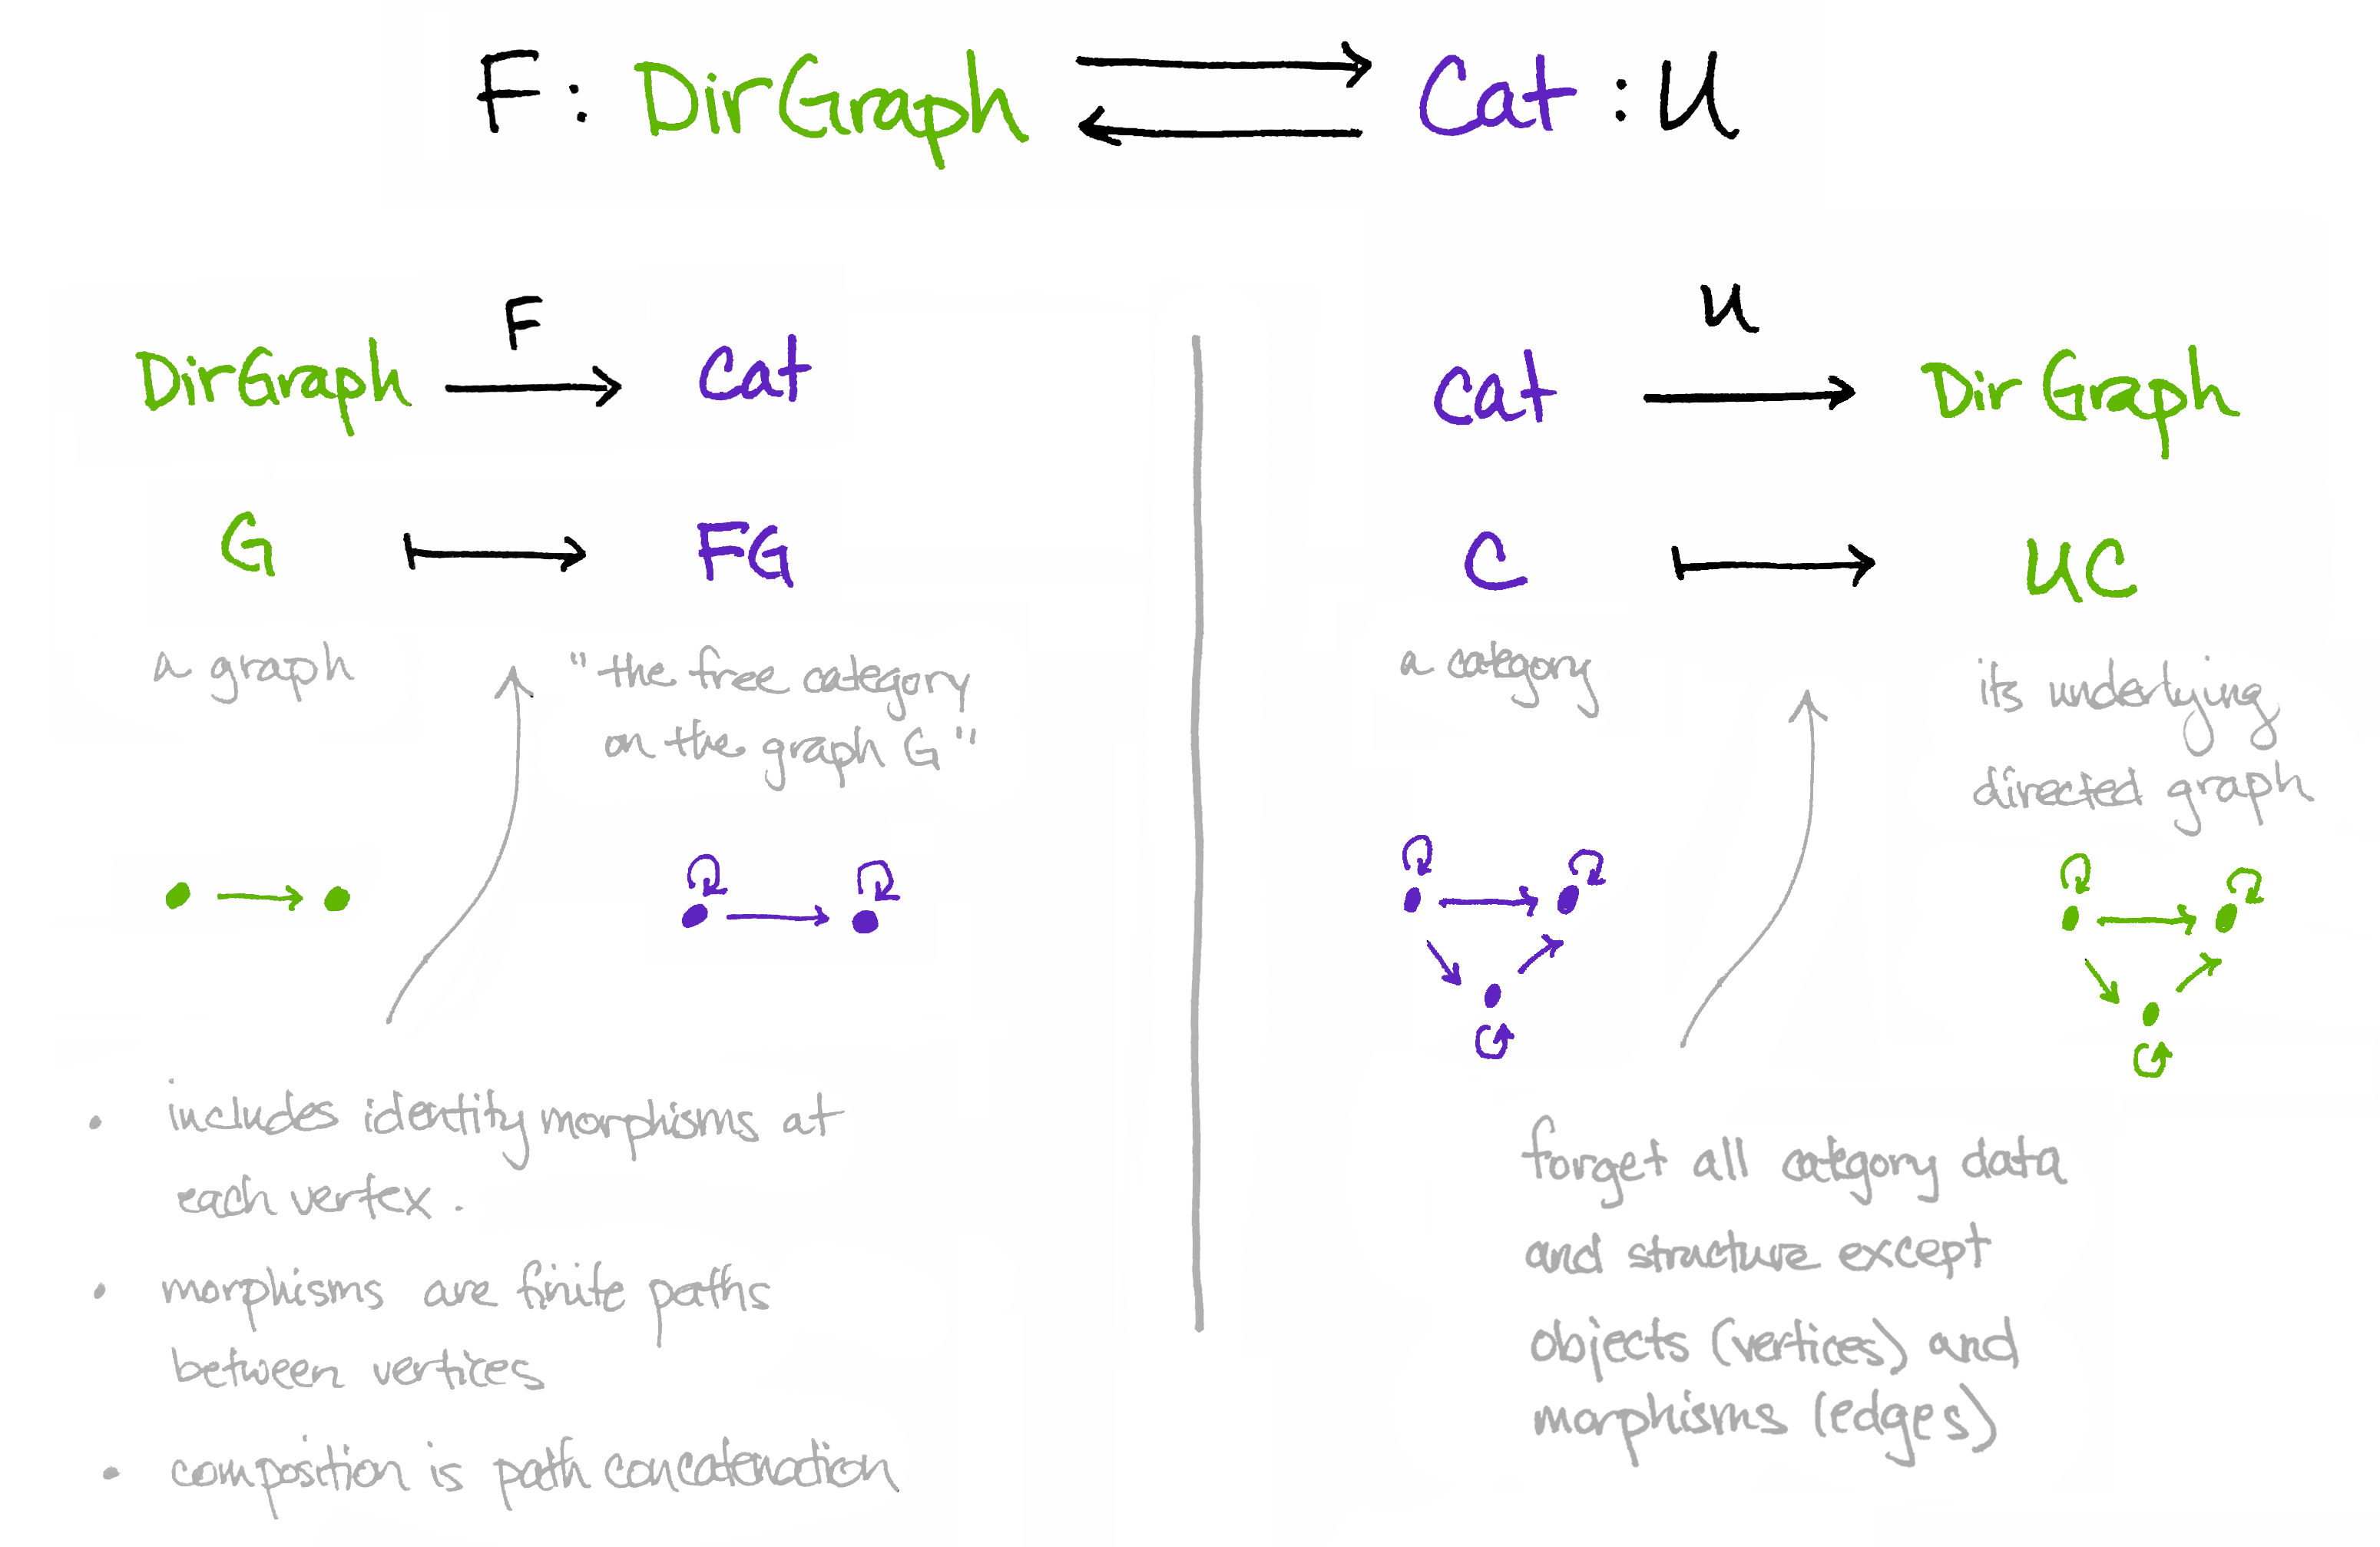 F: DirGraph ⟶ ⟵ Cat : U
F
DirGraph ⟶ Cat
G ⟼ FG
a graph
"the free category
on the graph G"
• includes identity morphisms at
each vertex.
• morphisms are finite paths
between vertices
• composition is path concatenation
U
Cat ⟶ DirGraph
C ⟼ UC
a category
its underlying
directed graph
forget all category data
and structure except
objects (vertices) and
morphisms (edges)